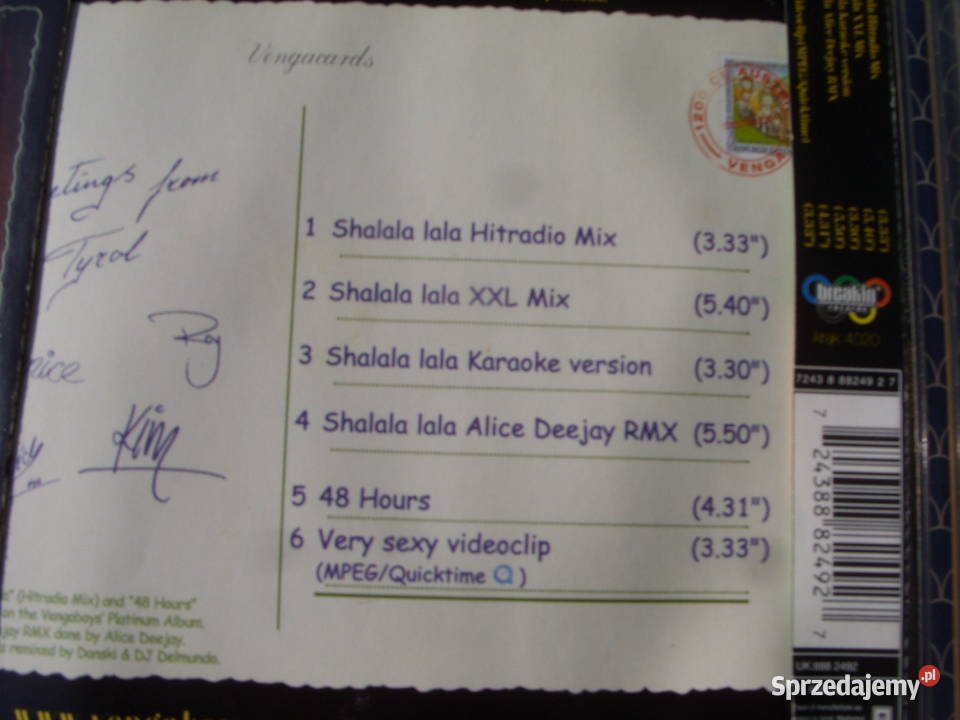 Vengacards
etings from
Tyrol
Roy
Kim
1 Shalala lala Hitradio Mix (3.33")
2 Shalala lala XXL Mix (5.40")
3 Shalala lala Karaoke version (3.30")
4 Shalala lala Alice Deejay RMX (5.50")
5 48 Hours (4.31")
6 Very sexy videoclip (3.33")
(MPEG/Quicktime Q)
(Hitradio Mix) and "48 Hours"
on the Vengaboys' Platinum Album.
jay RMX done by Alice Deejay.
remixed by Danski & DJ Delmundo.
1200
VENGA
breakin'
krak 4020
7243 8 88249 2 7
7 24388 82492 7
UK:888 2492
Sprzedajemy.pl